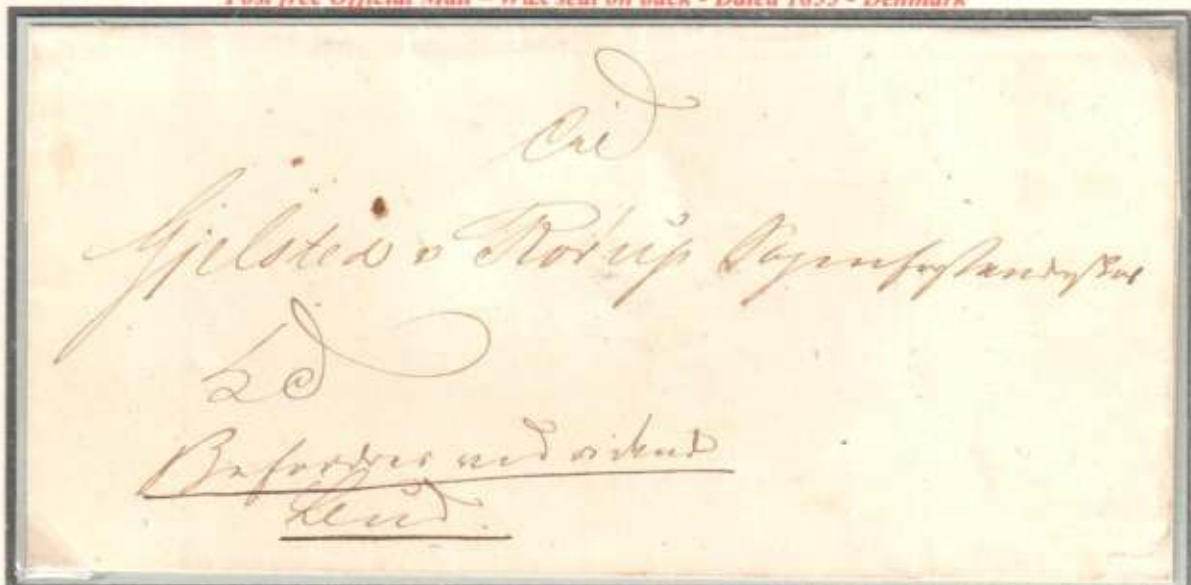 Post free Official Mail - Wax seal on back - Dated 1855 - Denmark
Til
Gjelsted & Rørup Sogneforstanderskab
Befordres ved ridende
Bud.